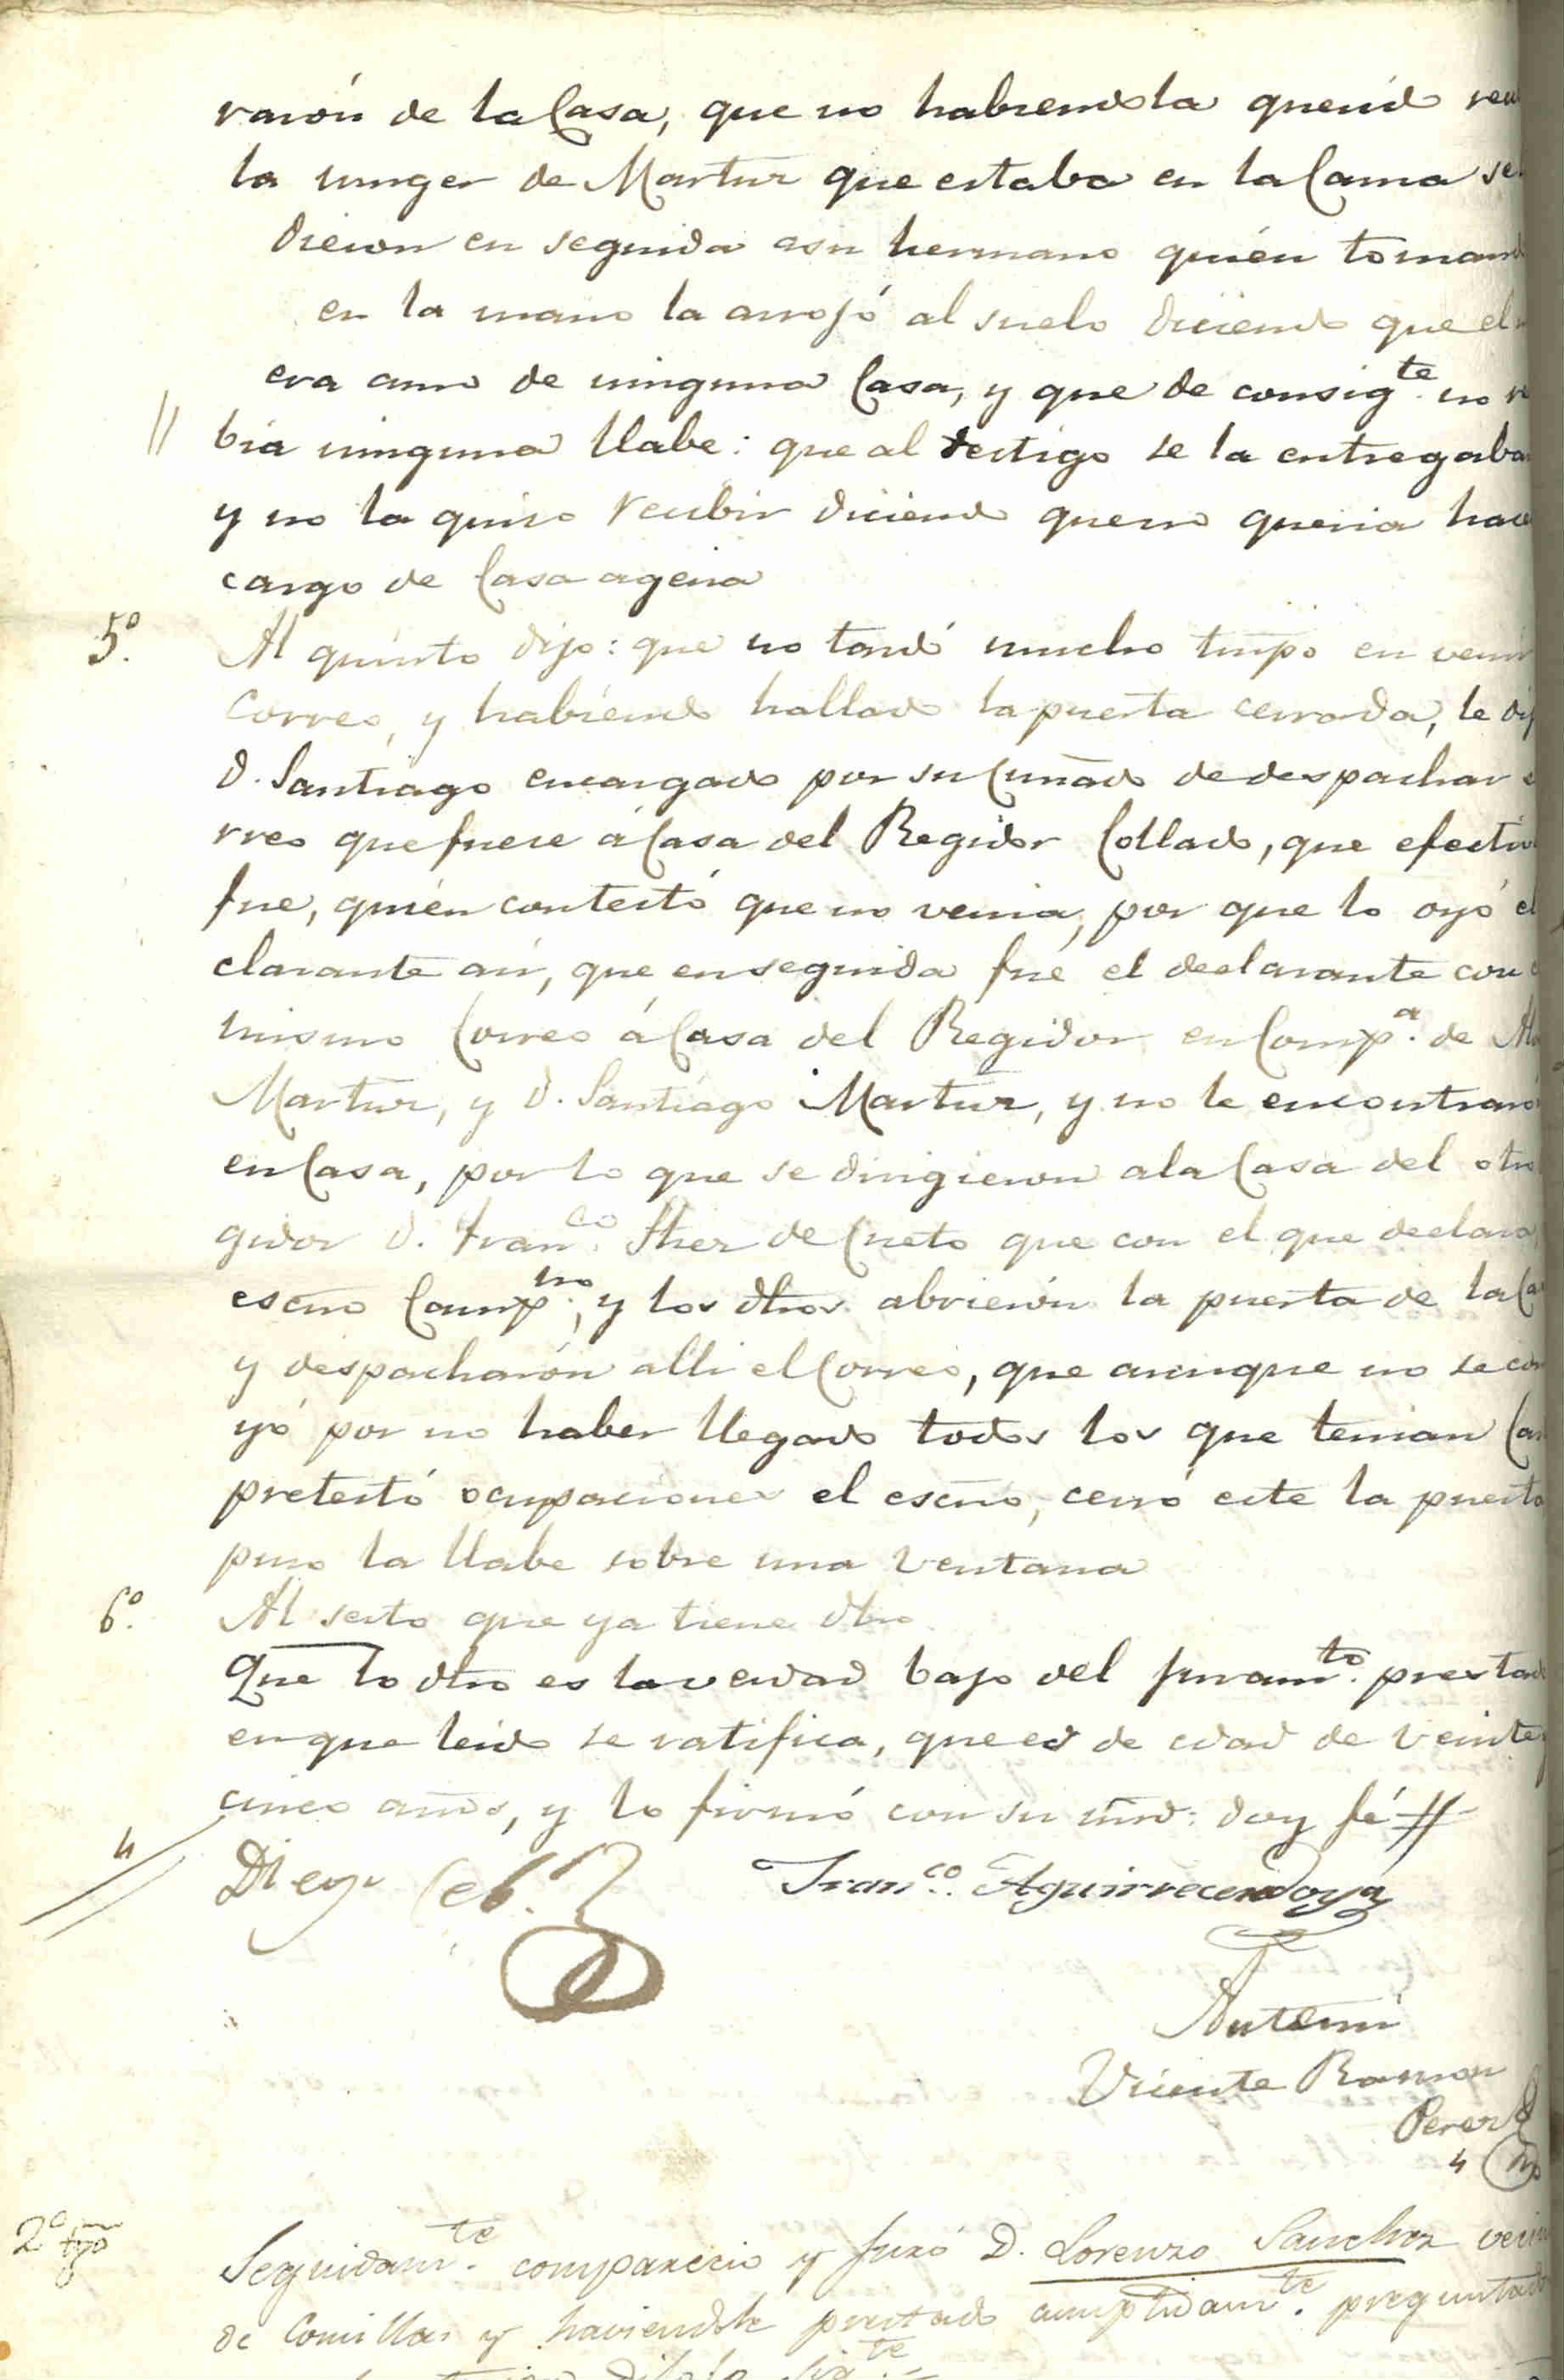 varón de la Casa, que no habiendola querid
la muger de Martur que estaba en la Cama se
dieron en seguida asu hermano quién tomand
en la mano la arrojó al suelo diciendo que el
era amo de ninguna Casa, y que de consigte. no re
// bia ninguna llabe: que al testigo se la entregaba
y no la quiso recibir diciendo que no queria hace
cargo de Casa agena
5º. Al quinto dijo: que no tardó mucho tmpo en venir
Correo, y habiendo hallado la puerta cerrada, le dij
D. Santiago encargado por su Cuñado de despachar
rreo que fuese á Casa del Regidor Collado, que efectiv
fue, quién contestó que no venia, por que lo oyó el
clarante asi, que enseguida fué el declarante con
mismo Correo á Casa del Regidor en Compª. de
Martur, y D. Santiago Martur, y no le encontraró
en Casa, por lo que se dirigieron ala Casa del otro
gidor D. Franco. Sher de Cueto que con el que declara,
escno Campno., y los dhos abrierón la puerta de la Ca
y despacharón alli el Correo, que aunque no se con
yó por no haber llegado todos los que tenian Car
pretestó ocupaciones el escno, cerró este la puerta
puso la llabe sobre una ventana
6º. Al sesto que ya tiene dho
Que lo dho es la verdad bajo del juramto. prestad
en que leido se ratifica, que es de edad de veinte y
cinco años, y lo firmó con su mrd: doy fé
Diego Ceb.
Franco. Aguirrecendoya
Antemi
Vicente Ramon
Perez
2º tgo Seguidamte. comparecio y juró D. Lorenzo Sanchez veci
de Comillas y haviendole prestado cumplidamte. preguntad